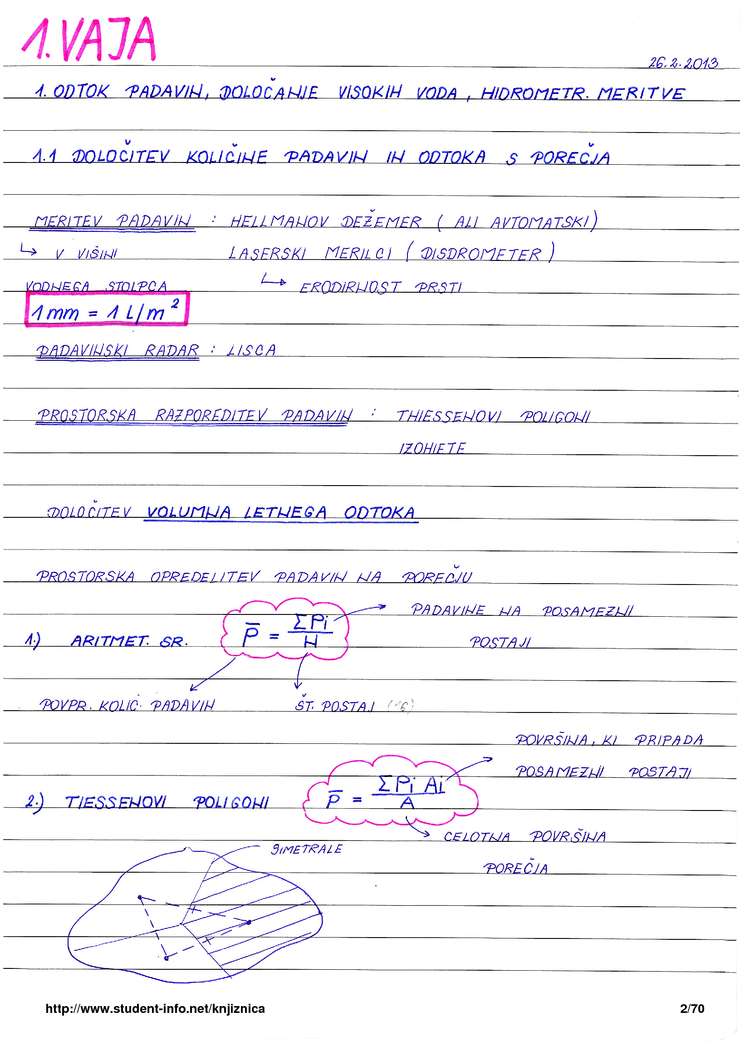 1. VAJA
26.2.2013
1. ODTOK PADAVIN, DOLOČANJE VISOKIH VODA, HIDROMETR. MERITVE
1.1 DOLOČITEV KOLIČINE PADAVIN IN ODTOKA S POREČJA
MERITEV PADAVIN : HELLMANOV DEŽEMER ( ALI AVTOMATSKI)
↳ V VIŠINI LASERSKI MERILCI ( DISDROMETER )
VODNEGA STOLPCA ↳ ERODIRNOST PRSTI
1 mm = 1 L/m²
PADAVINSKI RADAR : LISCA
PROSTORSKA RAZPOREDITEV PADAVIN : THIESSENOVI POLIGONI
IZOHIETE
DOLOČITEV VOLUMNA LETNEGA ODTOKA
PROSTORSKA OPREDELITEV PADAVIN NA POREČJU
1.) ARITMET. SR. P̅ = ΣPi / N PADAVINE NA POSAMEZNI
POSTAJI
POVPR. KOLIČ. PADAVIN ŠT. POSTAJ
POVRŠINA, KI PRIPADA
POSAMEZNI POSTAJI
2.) TIESSENOVI POLIGONI P̅ = ΣPi Ai / A
CELOTNA POVRŠINA
POREČJA
SIMETRALE
http://www.student-info.net/knjiznica 2/70